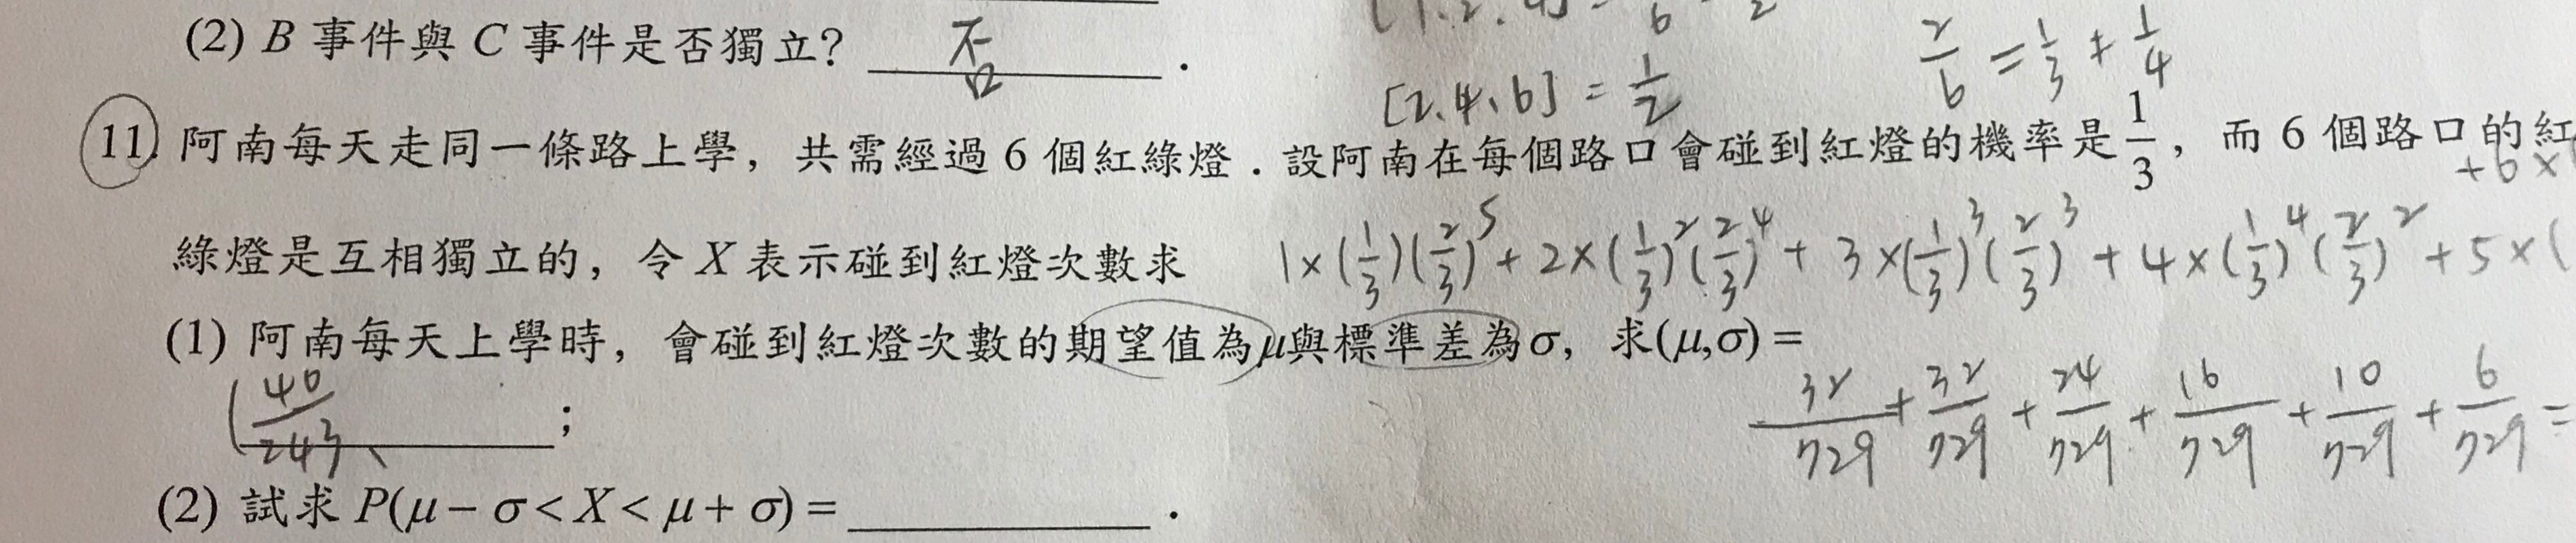 [1.2.4] = 6 2
(2) B 事件與 C 事件是否獨立? 否 .
[2.4、6] = 1/2
2/6 = 1/3 ≠ 1/4
11. 阿南每天走同一條路上學, 共需經過 6 個紅綠燈 . 設阿南在每個路口會碰到紅燈的機率是 1/3 , 而 6 個路口的紅
+6×
綠燈是互相獨立的, 令 X 表示碰到紅燈次數求
1×(1/3)(2/3)^5 + 2×(1/3)^2(2/3)^4 + 3×(1/3)^3(2/3)^3 + 4×(1/3)^4(2/3)^2 + 5×(
(1) 阿南每天上學時, 會碰到紅燈次數的期望值為μ與標準差為σ, 求(μ,σ) =
32/729 + 32/729 + 24/729 + 16/729 + 10/729 + 6/729 =
(40/243、 ;
(2) 試求 P(μ − σ < X < μ + σ) = .